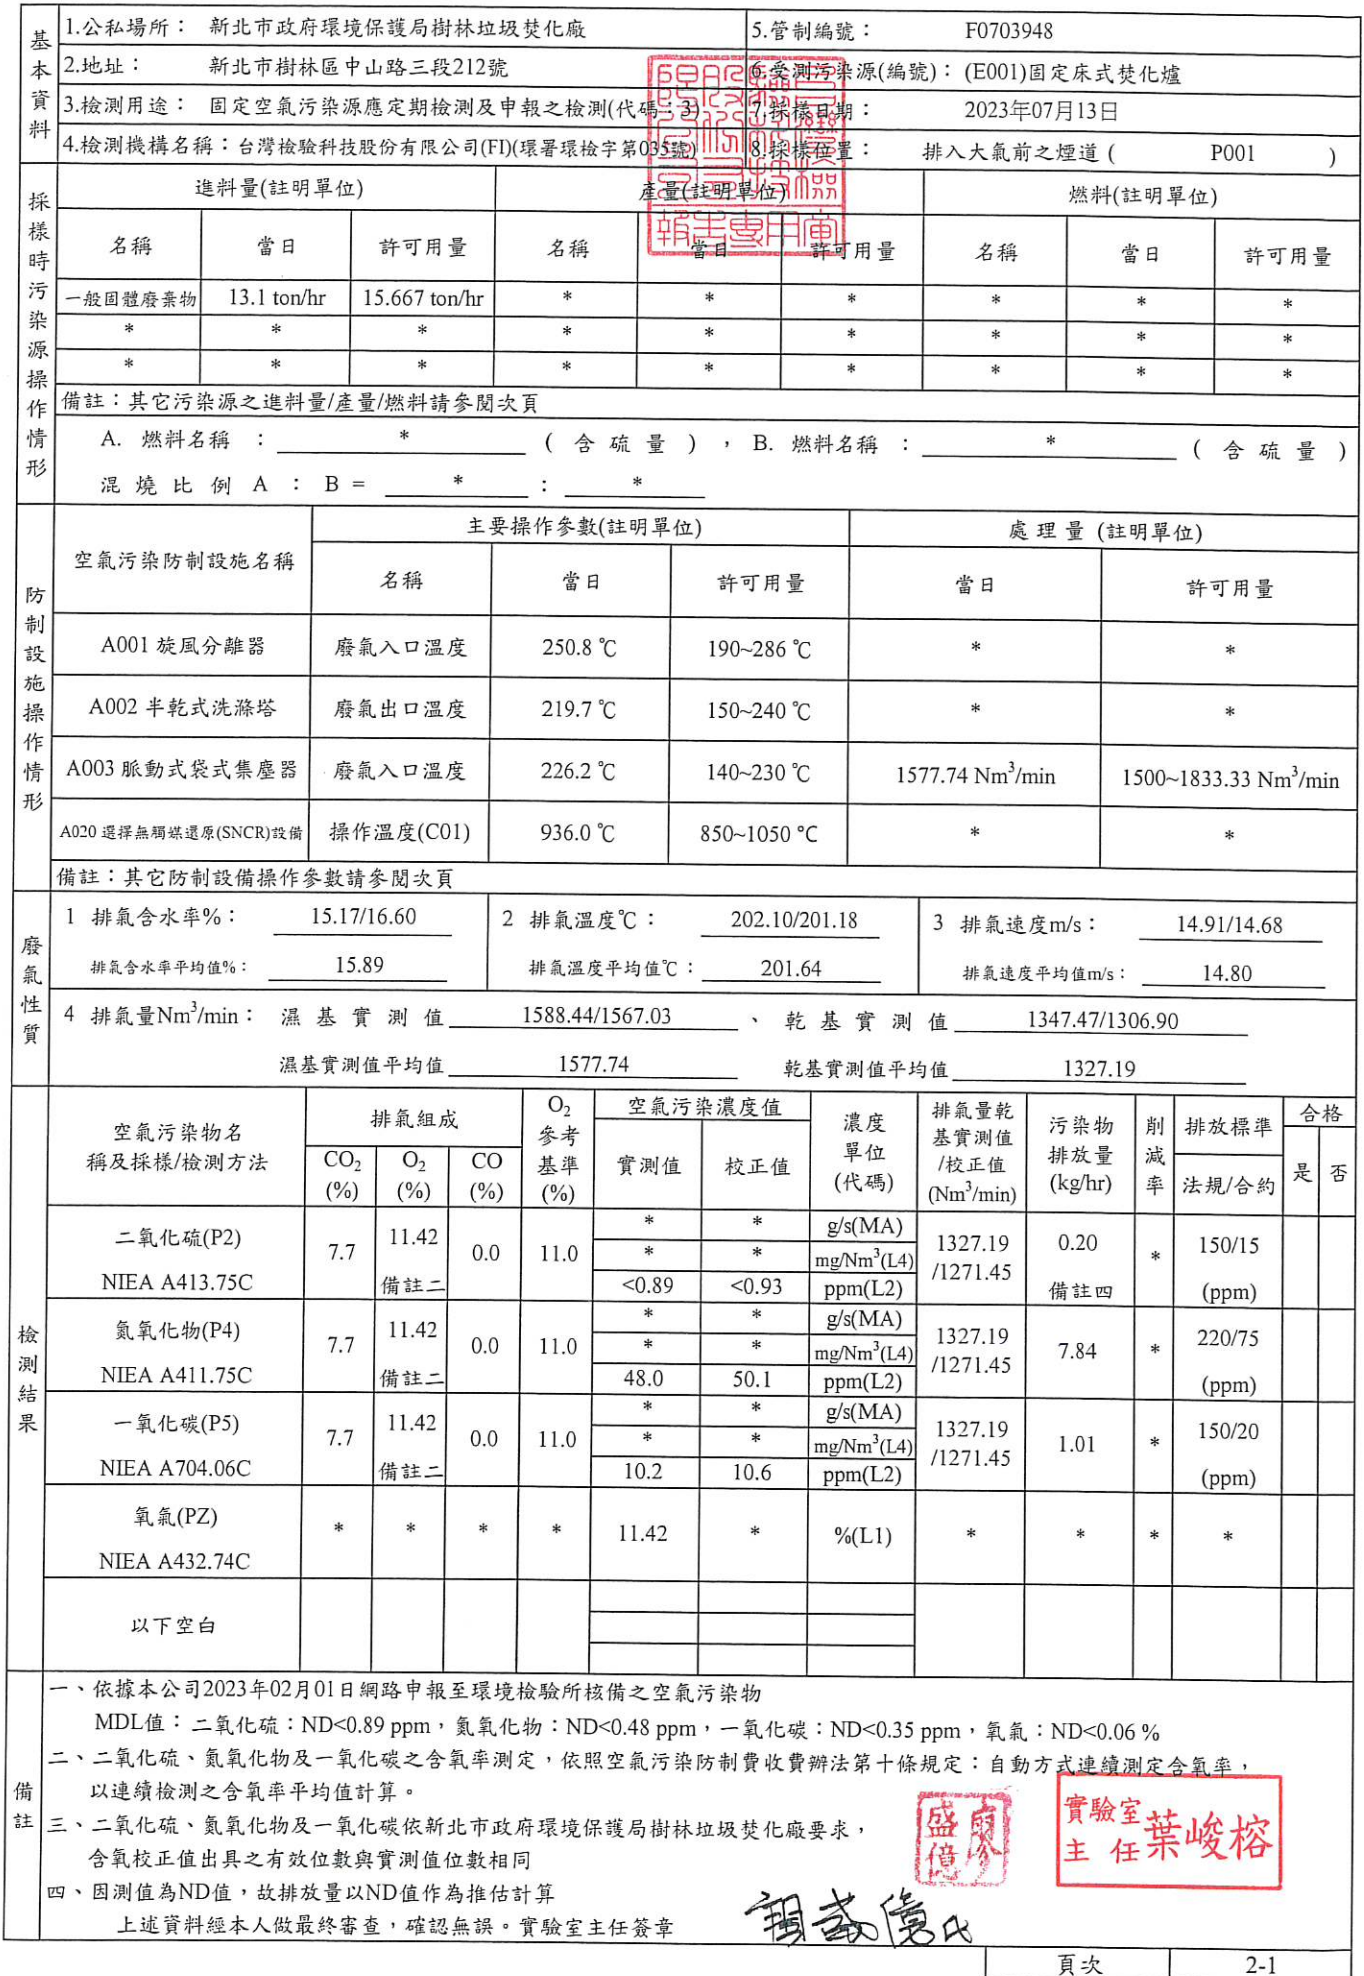 基本資料
1.公私場所： 新北市政府環境保護局樹林垃圾焚化廠 5.管制編號： F0703948
2.地址： 新北市樹林區中山路三段212號 6.受測污染源(編號)： (E001)固定床式焚化爐
3.檢測用途： 固定空氣污染源應定期檢測及申報之檢測(代碼：3) 7.採樣日期： 2023年07月13日
4.檢測機構名稱：台灣檢驗科技股份有限公司(FI)(環署環檢字第035號) 8.採樣位置： 排入大氣前之煙道 ( P001 )
採樣時污染源操作情形
進料量(註明單位) 產量(註明單位) 燃料(註明單位)
名稱 當日 許可用量 名稱 當日 許可用量 名稱 當日 許可用量
一般固體廢棄物 13.1 ton/hr 15.667 ton/hr * * * * * *
* * * * * * * * *
* * * * * * * * *
備註：其它污染源之進料量/產量/燃料請參閱次頁
A. 燃料名稱 ： * ( 含 硫 量 ) ， B. 燃料名稱 ： * ( 含 硫 量 )
混 燒 比 例 A ： B = * : *
防制設施操作情形
空氣污染防制設施名稱 主要操作參數(註明單位) 處 理 量 (註明單位)
名稱 當日 許可用量 當日 許可用量
A001 旋風分離器 廢氣入口溫度 250.8 ℃ 190~286 ℃ * *
A002 半乾式洗滌塔 廢氣出口溫度 219.7 ℃ 150~240 ℃ * *
A003 脈動式袋式集塵器 廢氣入口溫度 226.2 ℃ 140~230 ℃ 1577.74 Nm³/min 1500~1833.33 Nm³/min
A020 選擇無觸媒還原(SNCR)設備 操作溫度(C01) 936.0 ℃ 850~1050 ℃ * *
備註：其它防制設備操作參數請參閱次頁
廢氣性質
1 排氣含水率%： 15.17/16.60 2 排氣溫度℃： 202.10/201.18 3 排氣速度m/s： 14.91/14.68
排氣含水率平均值%： 15.89 排氣溫度平均值℃： 201.64 排氣速度平均值m/s： 14.80
4 排氣量Nm³/min： 濕 基 實 測 值 1588.44/1567.03 、 乾 基 實 測 值 1347.47/1306.90
濕基實測值平均值 1577.74 乾基實測值平均值 1327.19
檢測結果
空氣污染物名稱及採樣/檢測方法 排氣組成 O₂參考基準(%) 空氣污染濃度值 濃度單位(代碼) 排氣量乾基實測值/校正值(Nm³/min) 污染物排放量(kg/hr) 削減率 排放標準 合格
CO₂(%) O₂(%) CO(%) 實測值 校正值 法規/合約 是 否
二氧化硫(P2) NIEA A413.75C 7.7 11.42 備註二 0.0 11.0 * * g/s(MA) 1327.19/1271.45 0.20 備註四 * 150/15 (ppm)
* * mg/Nm³(L4)
<0.89 <0.93 ppm(L2)
氮氧化物(P4) NIEA A411.75C 7.7 11.42 備註二 0.0 11.0 * * g/s(MA) 1327.19/1271.45 7.84 * 220/75 (ppm)
* * mg/Nm³(L4)
48.0 50.1 ppm(L2)
一氧化碳(P5) NIEA A704.06C 7.7 11.42 備註二 0.0 11.0 * * g/s(MA) 1327.19/1271.45 1.01 * 150/20 (ppm)
* * mg/Nm³(L4)
10.2 10.6 ppm(L2)
氧氣(PZ) NIEA A432.74C * * * * 11.42 * %(L1) * * * *
以下空白
備註
一、依據本公司2023年02月01日網路申報至環境檢驗所核備之空氣污染物
MDL值： 二氧化硫：ND<0.89 ppm，氮氧化物：ND<0.48 ppm，一氧化碳：ND<0.35 ppm，氧氣：ND<0.06 %
二、二氧化硫、氮氧化物及一氧化碳之含氧率測定，依照空氣污染防制費收費辦法第十條規定：自動方式連續測定含氧率，
以連續檢測之含氧率平均值計算。
三、二氧化硫、氮氧化物及一氧化碳依新北市政府環境保護局樹林垃圾焚化廠要求，
含氧校正值出具之有效位數與實測值位數相同
四、因測值為ND值，故排放量以ND值作為推估計算
上述資料經本人做最終審查，確認無誤。實驗室主任簽章
實驗室主任 葉峻榕
頁次 2-1